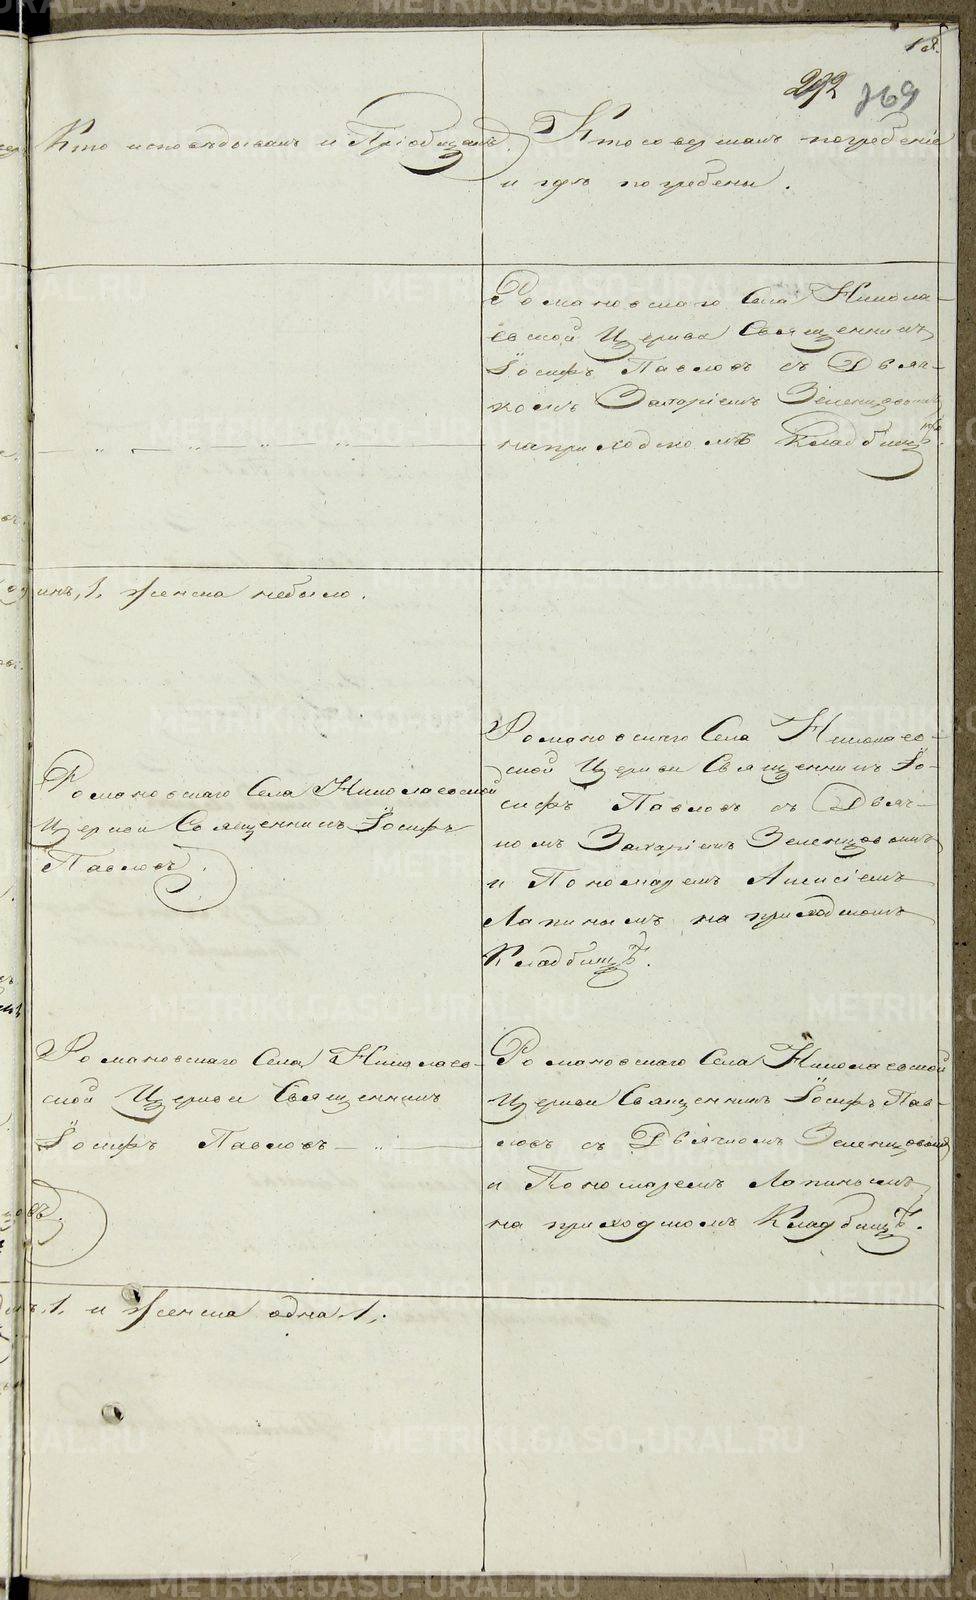 18.
292 769
Кто исповѣдывалъ и Пріобщалъ.
Кто совершалъ погребеніе
и гдѣ погребены.
Романовскаго Села Никола-
евской Церкви Священникъ
Іосифъ Павловъ съ Дьяч-
комъ Захаріемъ Зеленцовымъ
на приходскомъ Кладбищѣ.
инъ, 1, женска небыло.
Романовскаго Села Николаевской
Церкви Священникъ Іосифъ
Павловъ.
Романовскаго Села Николаев-
ской Церкви Священникъ Іо-
сифъ Павловъ съ Дьяч-
комъ Захаріемъ Зеленцовымъ
и Пономаремъ Алексіемъ
Лапинымъ на приходскомъ
Кладбищѣ.
Романовскаго Села Николаев-
ской Церкви Священникъ
Іосифъ Павловъ
Романовскаго Села Николаевской
Церкви Священникъ Іосифъ Пав-
ловъ съ Дьячкомъ Зеленцовымъ
и Пономаремъ Лапинымъ
на приходскомъ Кладбищѣ.
1, и женска одна, 1,.
METRIKI.GASO-URAL.RU